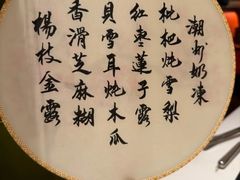 潮州奶凍
枇杷炖雪梨
紅枣蓮子露
貝雪耳炖木瓜
香滑芝麻糊
楊枝金露